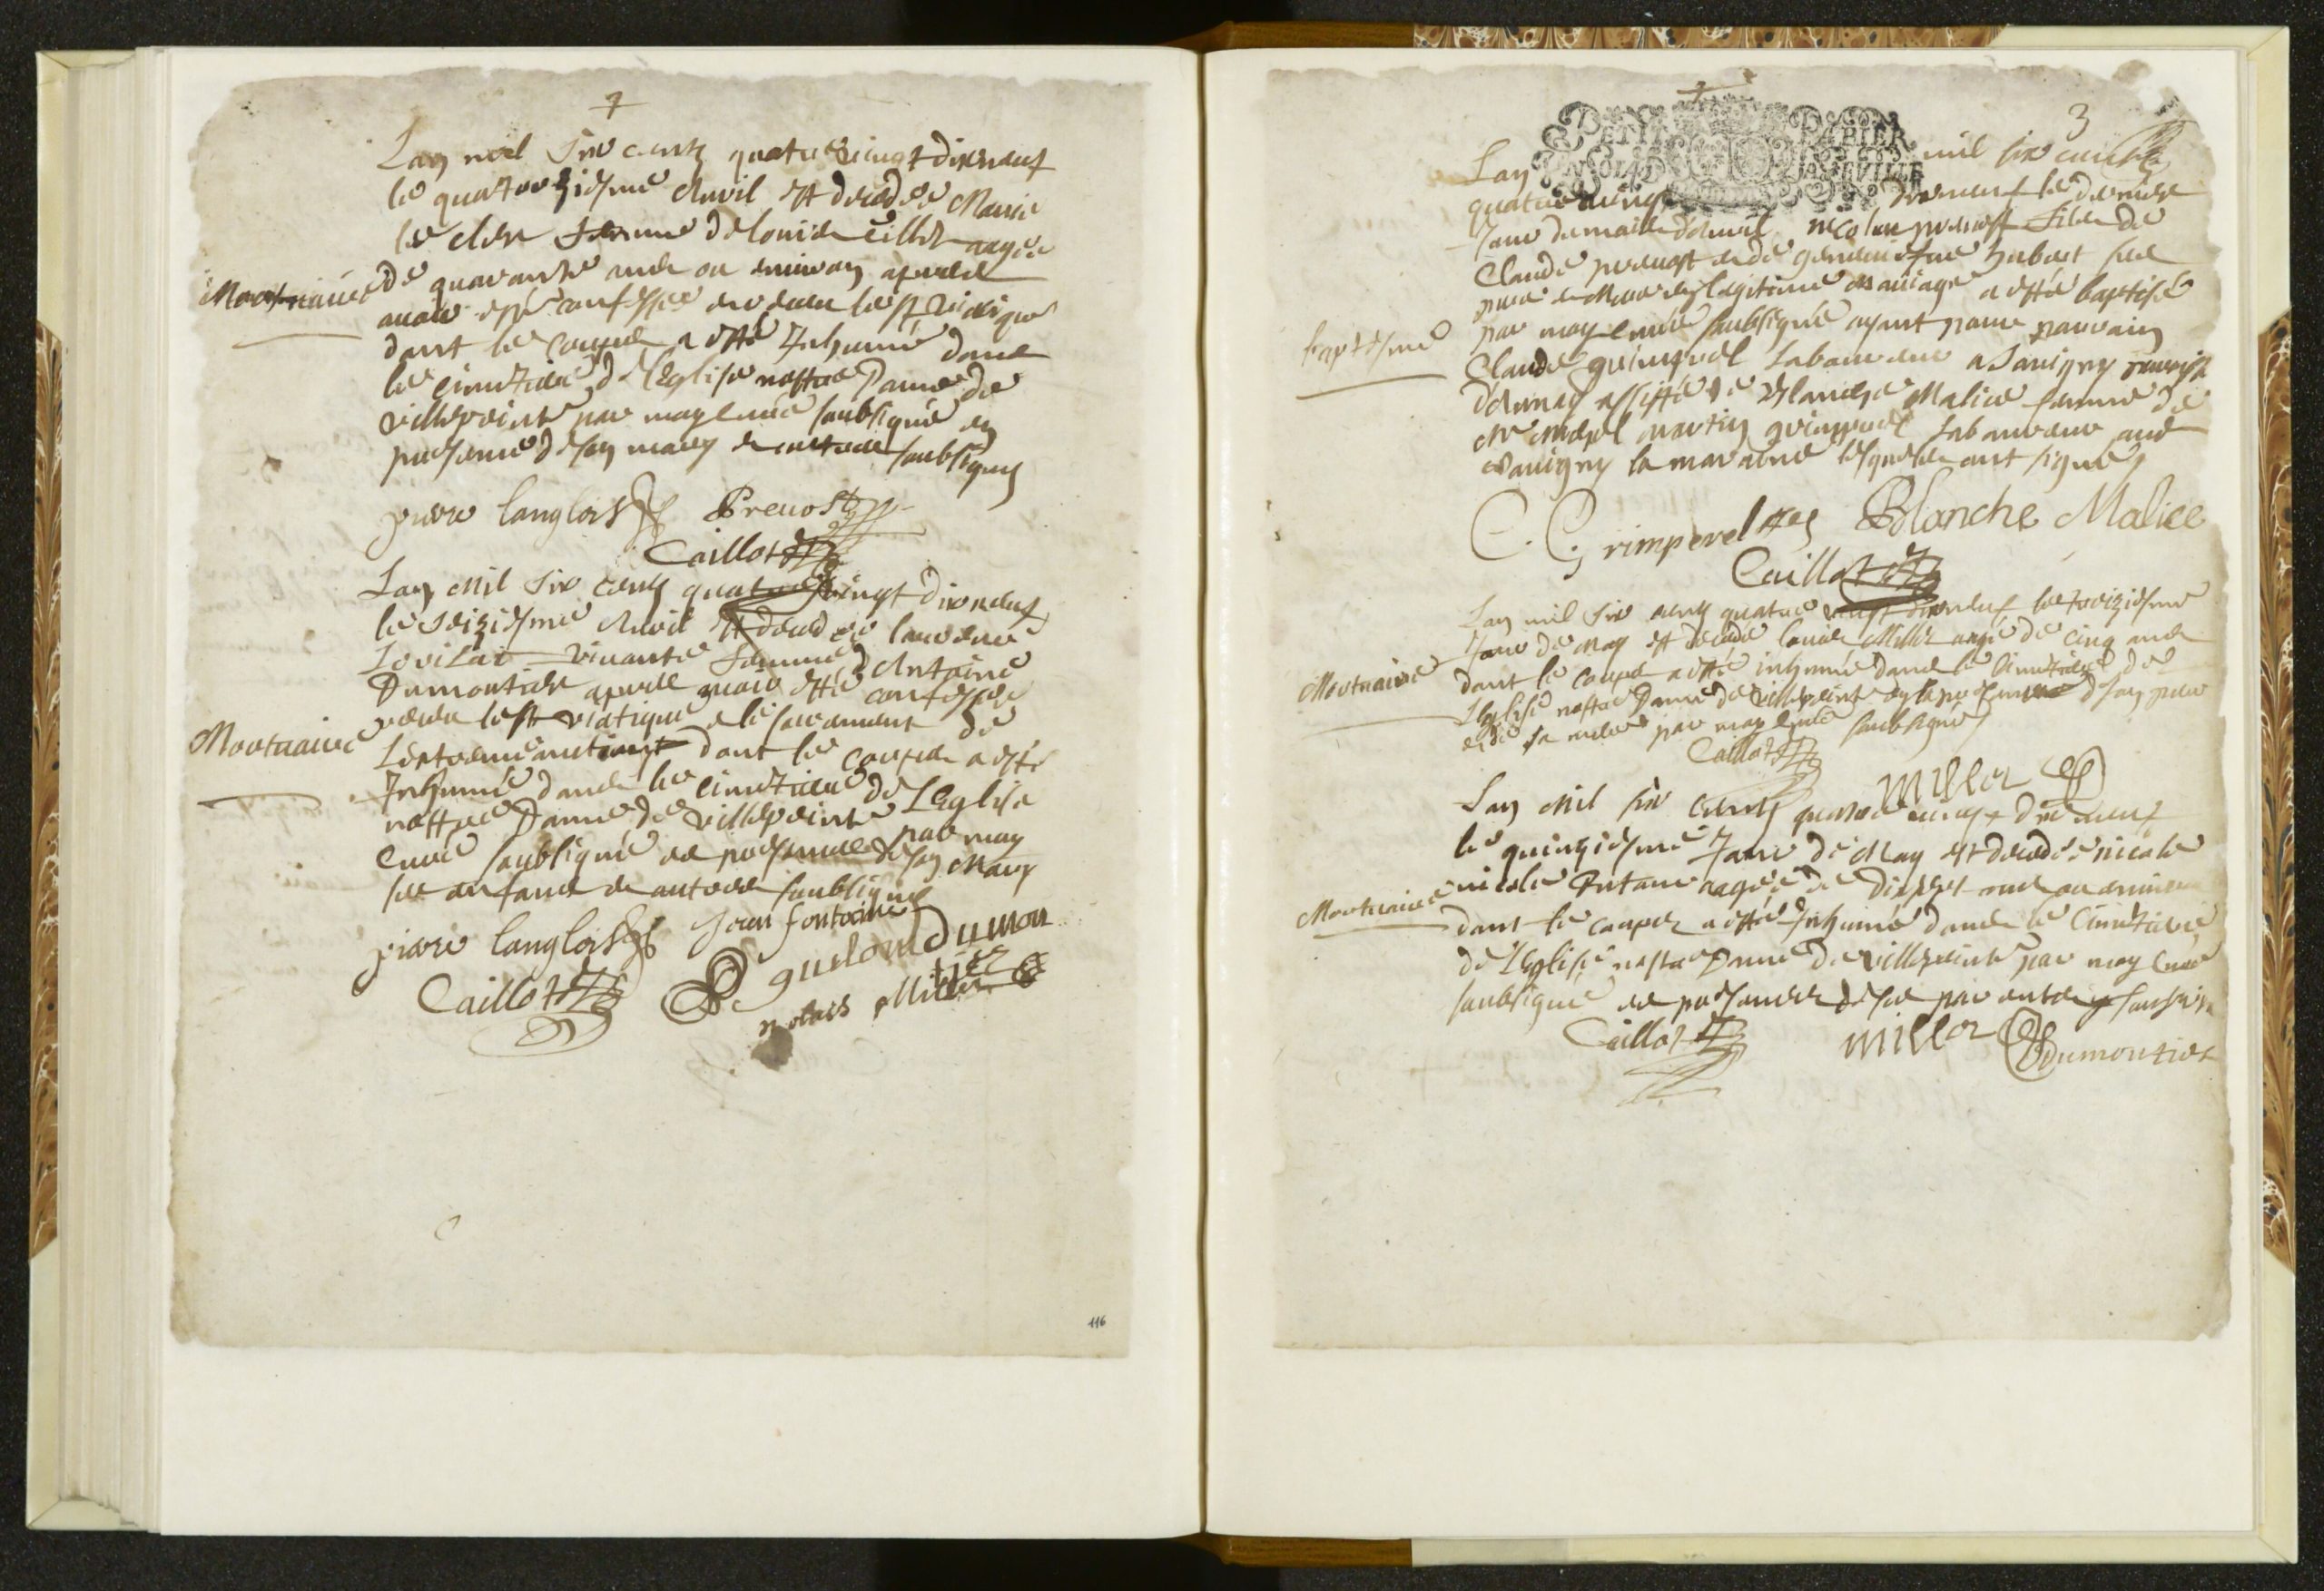 Lan mil six cents quatre vingt dixneuf
le quatorziesme Auril est decedée Marie
le clerc femme de louis aagée
Mortuaire
de quarante ans ou enuiron apres
auoir esté confessée et receu le st viatique
dont le corps a esté Inhumé dans
le cimetiere de leglise nostre Dame de
villepeinte par moy curé soubsigné en
presence de son mary et autres soubsignes
pierre langlois Preuost
Caillot
Lan Mil six cents quatre vingt dixneuf
le seiziesme Auril est decedée
viuante femme d Antoine
Dumontier apres auoir esté confessée
receu le st viatique et le sacrement de
Mortuaire
lextremeonction dont le corps a esté
Inhumé dans le cimetiere de Leglise
nostre Dame de villepeinte par moy
curé soubsigné en presence de son Mary
ses enfans et autres soubsignes
pierre langlois Jean fontaine
Caillot dumontier
116
3
PETIT PAPIER
Lan mil six cents
quatre vingt dixneuf le dernier
Jour du mois dAuril Nicolas preuost fils de
Claude preuost et de geneuiefue hubert ses
pere et Mere en legitime mariage a esté baptisé
baptesme
par moy curé soubsigné ayant pour parain
Claude grimperel laboureur a Sauigny
dAunay assisté de Blanche Malice femme de
Martin grimperel laboureur aud
Sauigny la maraine lesquels ont signé
C. Grimperel Blanche Malice
Caillot
Lan mil six cents quatre vingt dixneuf le treiziesme
Jour de May est decedé louis Miller aagé de cinq ans
Mortuaire
dont le corps a esté inhumé dans le Cimetiere de
Leglise nostre Dame de villepeinte en la presence de son pere
et de sa mere par moy curé soubsigné
Caillot
Miller
Lan Mil six cents quatre vingt dixneuf
le quinziesme Jour de May est decedée nicole
Mortuaire
nicole aagée de ans ou enuiron
dont le corps a esté Inhumé dans le Cimetiere
de Leglise nostre Dame de villepeinte par moy Curé
soubsigné en presence de ses parents
Caillot Miller dumontier